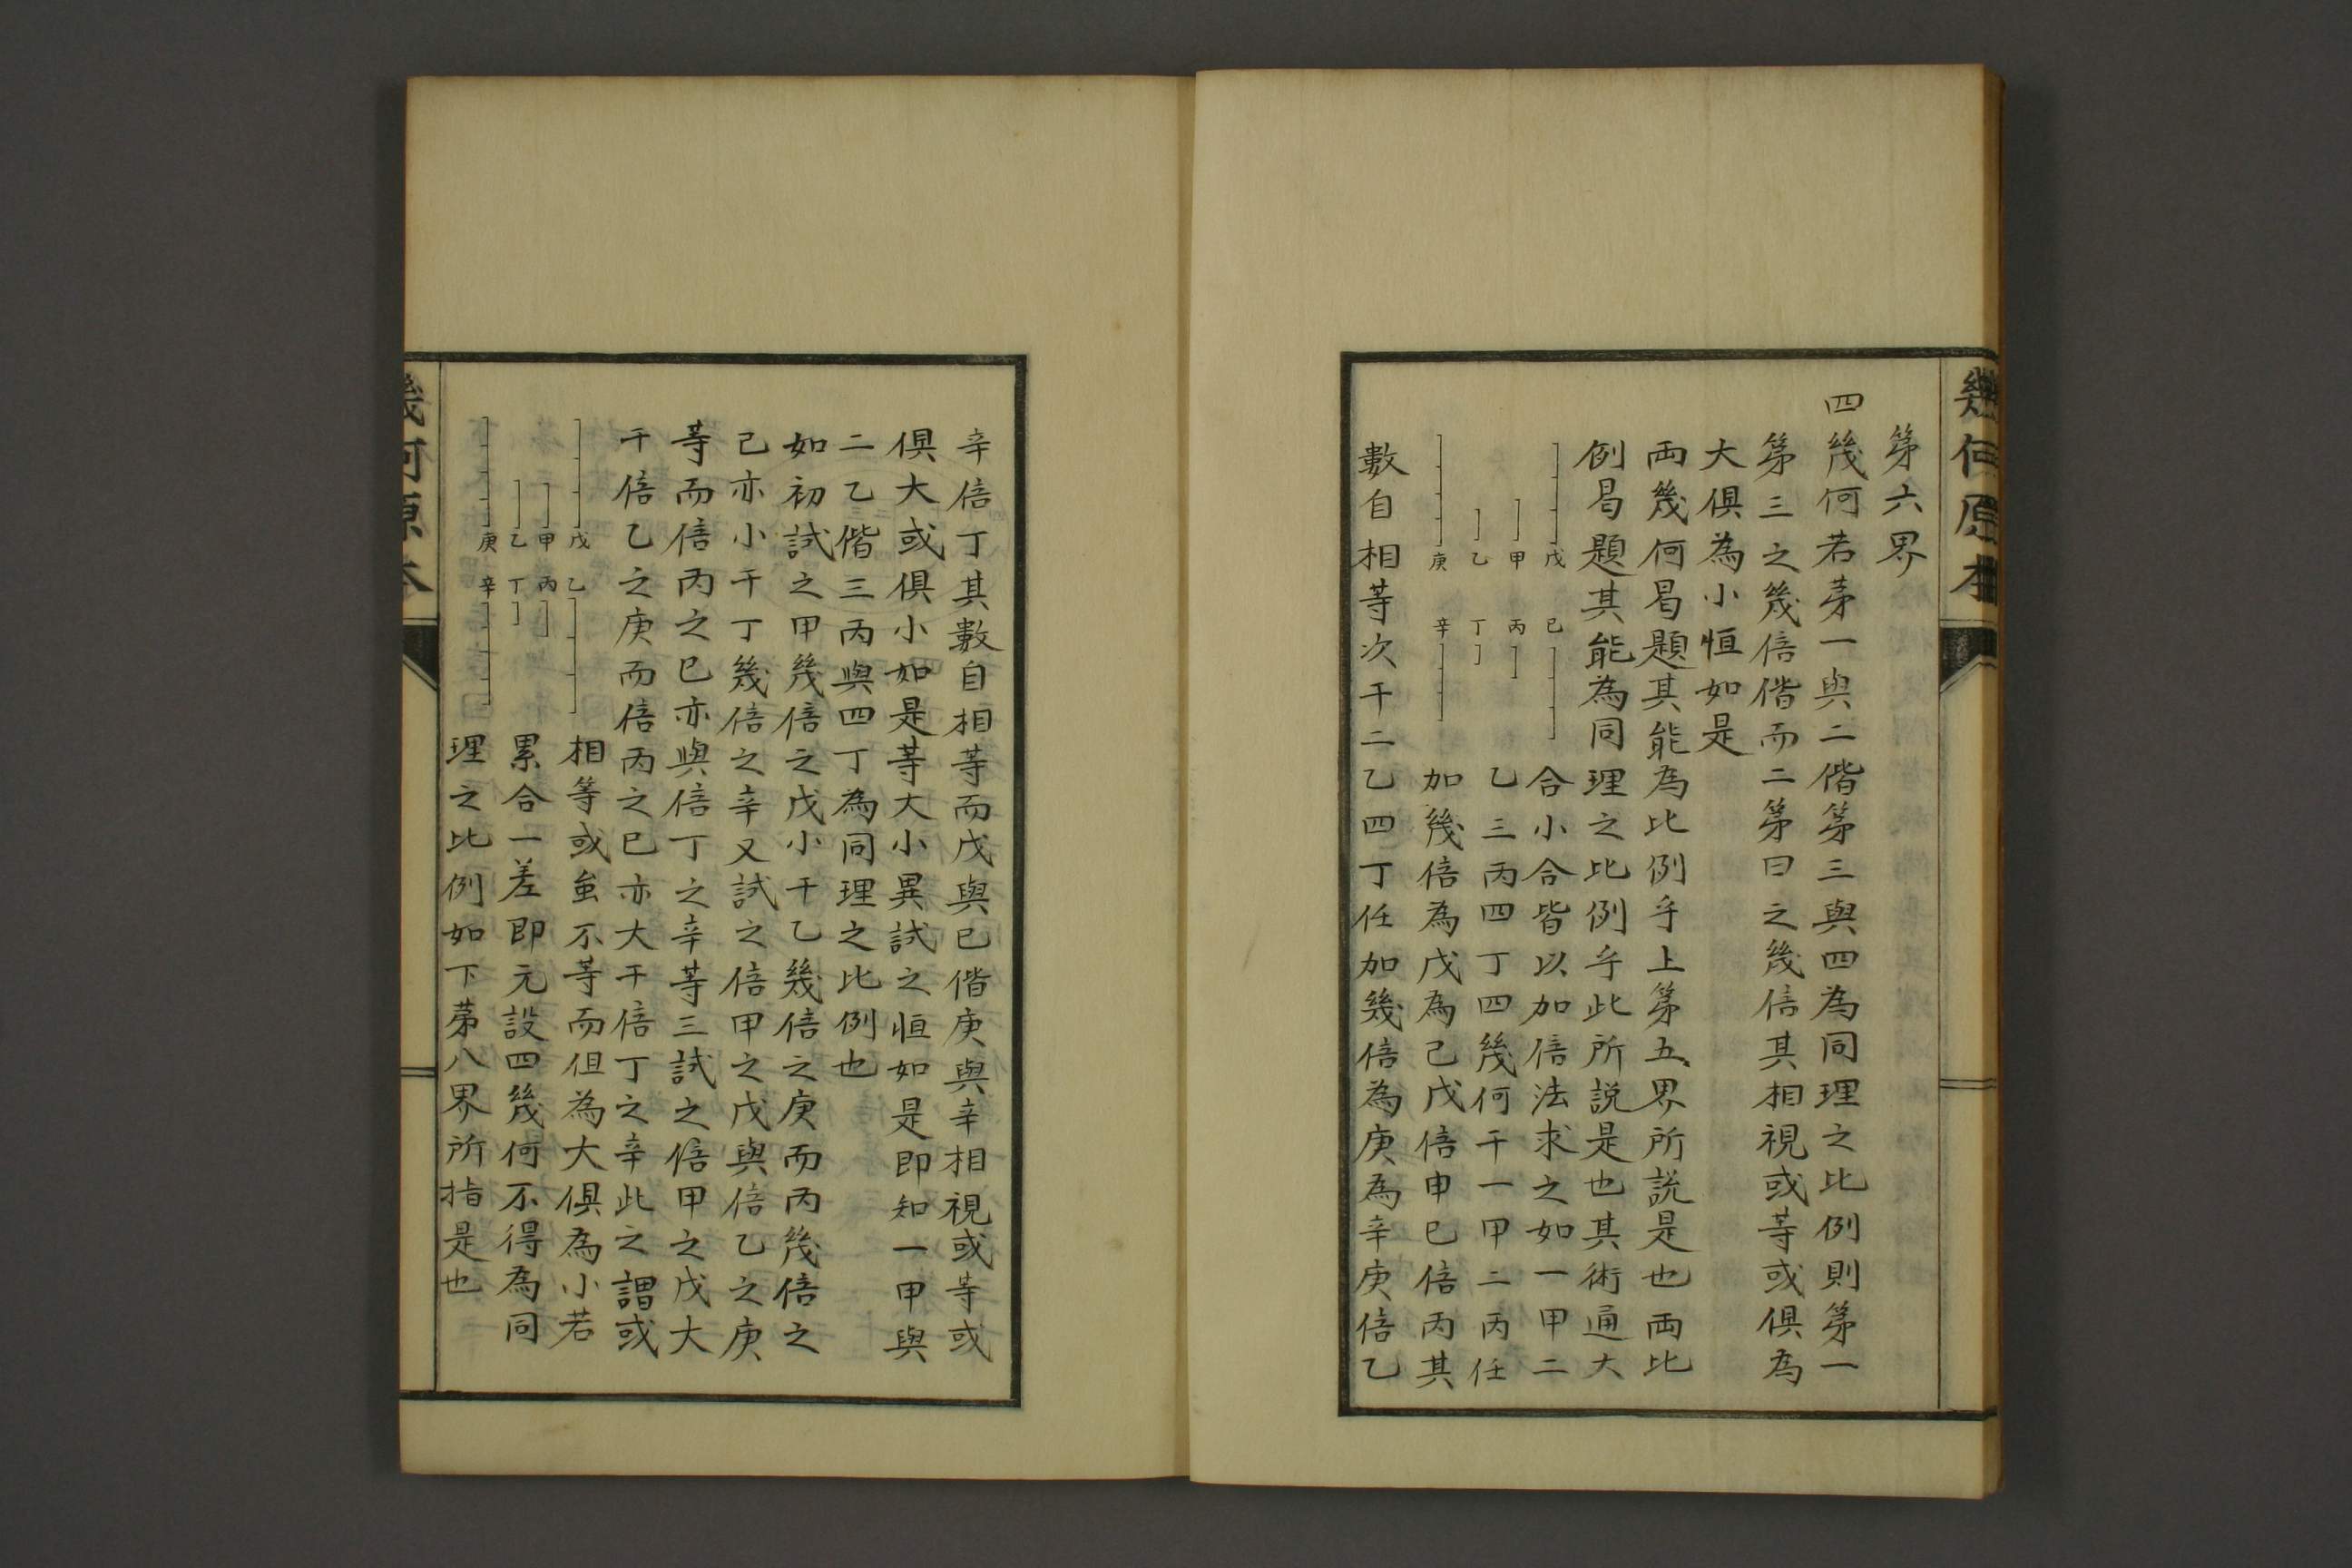 幾何原本
第六界
四幾何若苐一與二偕第三與四為同理之比例則第一
第三之幾倍偕而二第曰之幾倍其相視或等或俱為
大俱為小恒如是
両幾何曷題其能為比例乎上第五界所說是也両比
例曷題其能為同理之比例乎此所説是也其術通大
合小合皆以加倍法求之如一甲二
乙三丙四丁四幾何于一甲二丙任
加幾倍為戊為己戊倍申巳倍丙其
數自相等次于二乙四丁任加幾倍為庚為辛庚倍乙
戊
甲
乙
庚
巳
丙
丁
辛
辛倍丁其數自相等而戊與巳偕庚與辛相視或等或
俱大或俱小如是等大小異試之恒如是即知一甲與
二乙偕三丙與四丁為同理之比例也
如初試之甲幾倍之戊小于乙幾倍之庚而丙幾倍之
己亦小于丁幾倍之辛又試之倍甲之戊與倍乙之庚
等而倍丙之巳亦與倍丁之辛等三試之倍甲之戊大
于倍乙之庚而倍丙之巳亦大于倍丁之辛此之謂或
相等或虽不等而但為大俱為小若
累合一差即元設四幾何不得為同
理之比例如下苐八界所指是也
戊
甲
乙
庚
乙
丙
丁
辛
幾何原本